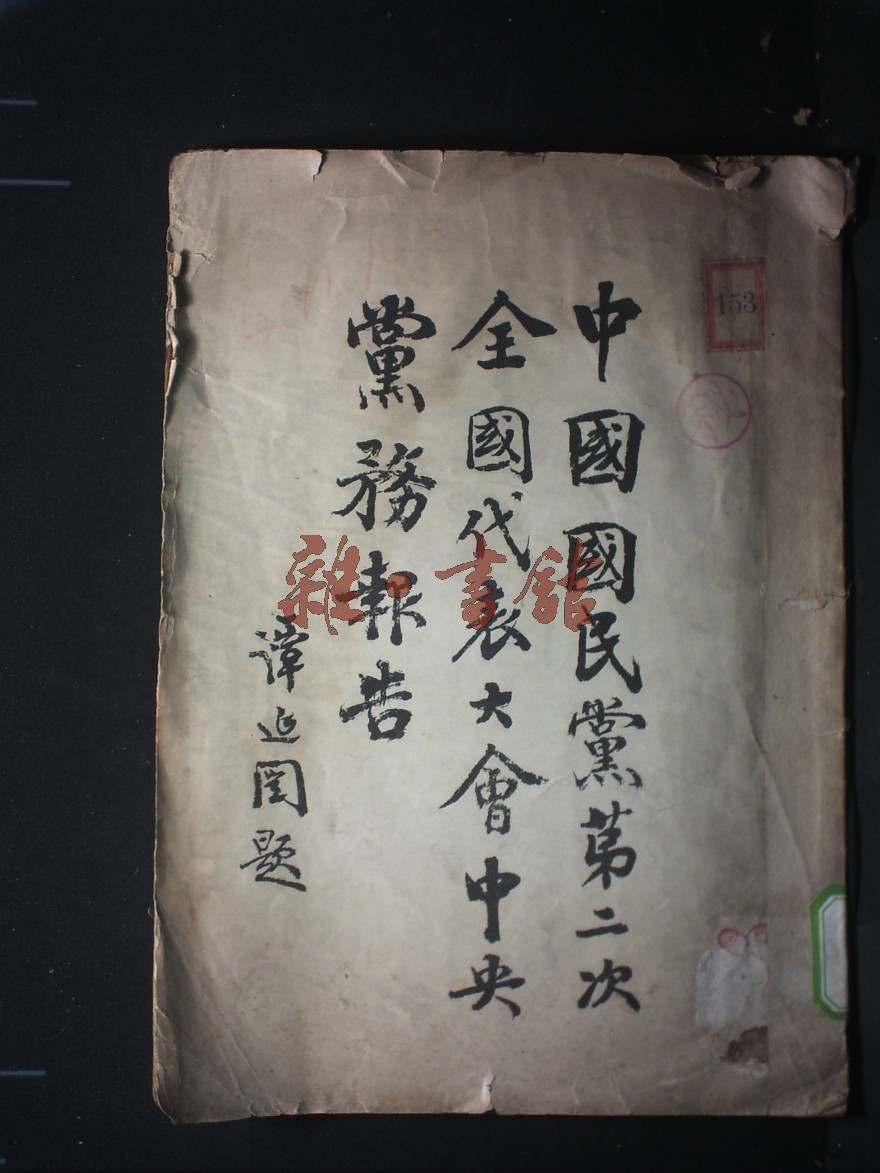 中國國民黨第二次
全國代表大會中央
黨務報告
譚延闓題
153
雜·書館